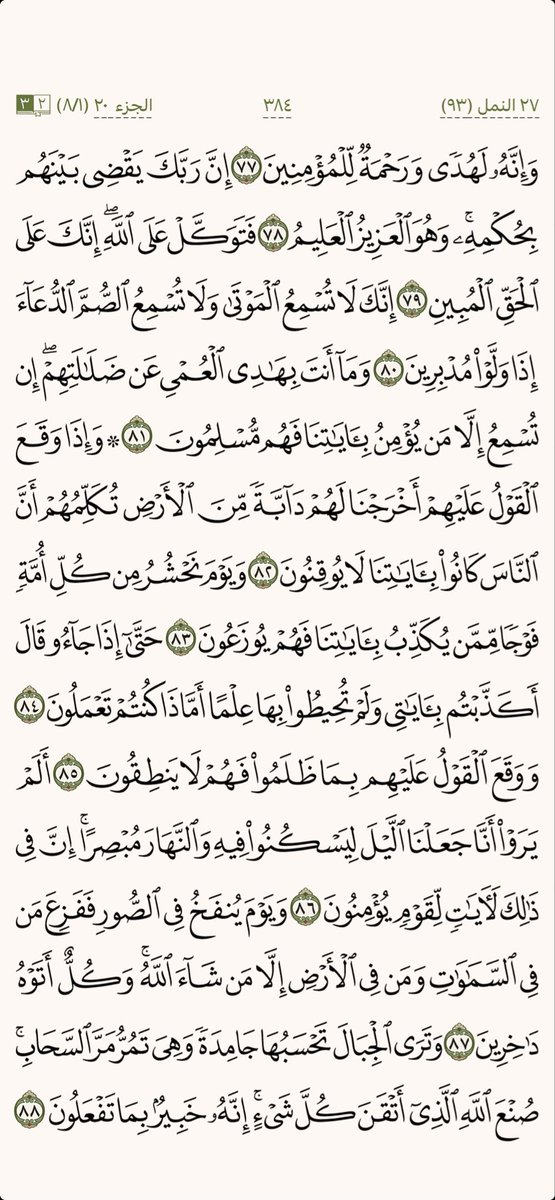 ٢٧ النمل (٩٣) ٣٨٤ الجزء ٢٠ (٨/١) ٢ ٣
وَإِنَّهُۥ لَهُدٗى وَرَحۡمَةٞ لِّلۡمُؤۡمِنِينَ ٧٧ إِنَّ رَبَّكَ يَقۡضِي بَيۡنَهُم
بِحُكۡمِهِۦۚ وَهُوَ ٱلۡعَزِيزُ ٱلۡعَلِيمُ ٧٨ فَتَوَكَّلۡ عَلَى ٱللَّهِۖ إِنَّكَ عَلَى
ٱلۡحَقِّ ٱلۡمُبِينِ ٧٩ إِنَّكَ لَا تُسۡمِعُ ٱلۡمَوۡتَىٰ وَلَا تُسۡمِعُ ٱلصُّمَّ ٱلدُّعَآءَ
إِذَا وَلَّوۡاْ مُدۡبِرِينَ ٨٠ وَمَآ أَنتَ بِهَٰدِي ٱلۡعُمۡيِ عَن ضَلَٰلَتِهِمۡۖ إِن
تُسۡمِعُ إِلَّا مَن يُؤۡمِنُ بِـَٔايَٰتِنَا فَهُم مُّسۡلِمُونَ ٨١ ۞ وَإِذَا وَقَعَ
ٱلۡقَوۡلُ عَلَيۡهِمۡ أَخۡرَجۡنَا لَهُمۡ دَآبَّةٗ مِّنَ ٱلۡأَرۡضِ تُكَلِّمُهُمۡ أَنَّ
ٱلنَّاسَ كَانُواْ بِـَٔايَٰتِنَا لَا يُوقِنُونَ ٨٢ وَيَوۡمَ نَحۡشُرُ مِن كُلِّ أُمَّةٖ
فَوۡجٗا مِّمَّن يُكَذِّبُ بِـَٔايَٰتِنَا فَهُمۡ يُوزَعُونَ ٨٣ حَتَّىٰٓ إِذَا جَآءُو قَالَ
أَكَذَّبۡتُم بِـَٔايَٰتِي وَلَمۡ تُحِيطُواْ بِهَا عِلۡمًا أَمَّاذَا كُنتُمۡ تَعۡمَلُونَ ٨٤
وَوَقَعَ ٱلۡقَوۡلُ عَلَيۡهِم بِمَا ظَلَمُواْ فَهُمۡ لَا يَنطِقُونَ ٨٥ أَلَمۡ
يَرَوۡاْ أَنَّا جَعَلۡنَا ٱلَّيۡلَ لِيَسۡكُنُواْ فِيهِ وَٱلنَّهَارَ مُبۡصِرًاۚ إِنَّ فِي
ذَٰلِكَ لَأٓيَٰتٖ لِّقَوۡمٖ يُؤۡمِنُونَ ٨٦ وَيَوۡمَ يُنفَخُ فِي ٱلصُّورِ فَفَزِعَ مَن
فِي ٱلسَّمَٰوَٰتِ وَمَن فِي ٱلۡأَرۡضِ إِلَّا مَن شَآءَ ٱللَّهُۚ وَكُلٌّ أَتَوۡهُ
دَٰخِرِينَ ٨٧ وَتَرَى ٱلۡجِبَالَ تَحۡسَبُهَا جَامِدَةٗ وَهِيَ تَمُرُّ مَرَّ ٱلسَّحَابِۚ
صُنۡعَ ٱللَّهِ ٱلَّذِيٓ أَتۡقَنَ كُلَّ شَيۡءٍۚ إِنَّهُۥ خَبِيرُۢ بِمَا تَفۡعَلُونَ ٨٨